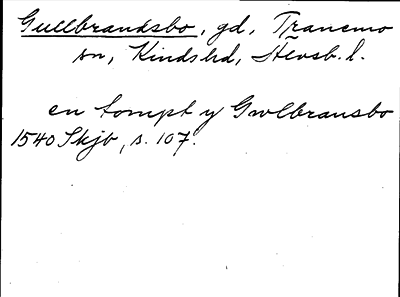 Gullbrandsbo, gd, Tranemo
sn, Kinds hd, Älvsb. l.
en tompt y Gwlbransbo
1540 Skjb, s. 107.